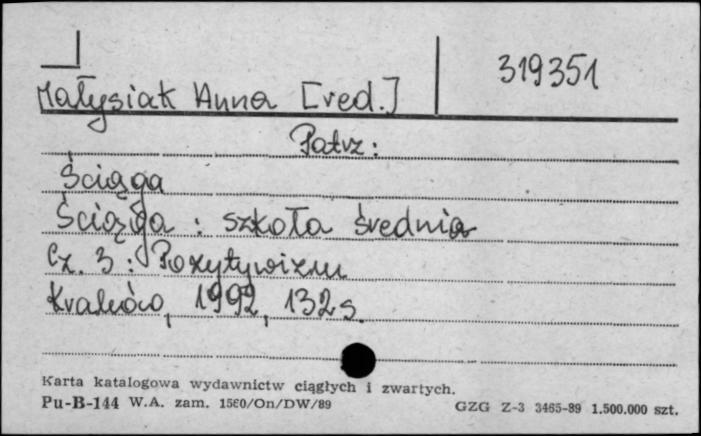 319351
Małysiak Anna [red.]
Patrz:
Ściąga
Ściąga : szkoła średnia
Cz. 3 : Pozytywizm
Kraków, 1992, 132 s.
Karta katalogowa wydawnictw ciągłych i zwartych.
Pu-B-144 W.A. zam. 1560/On/DW/89 GZG Z-3 3465-89 1.500.000 szt.